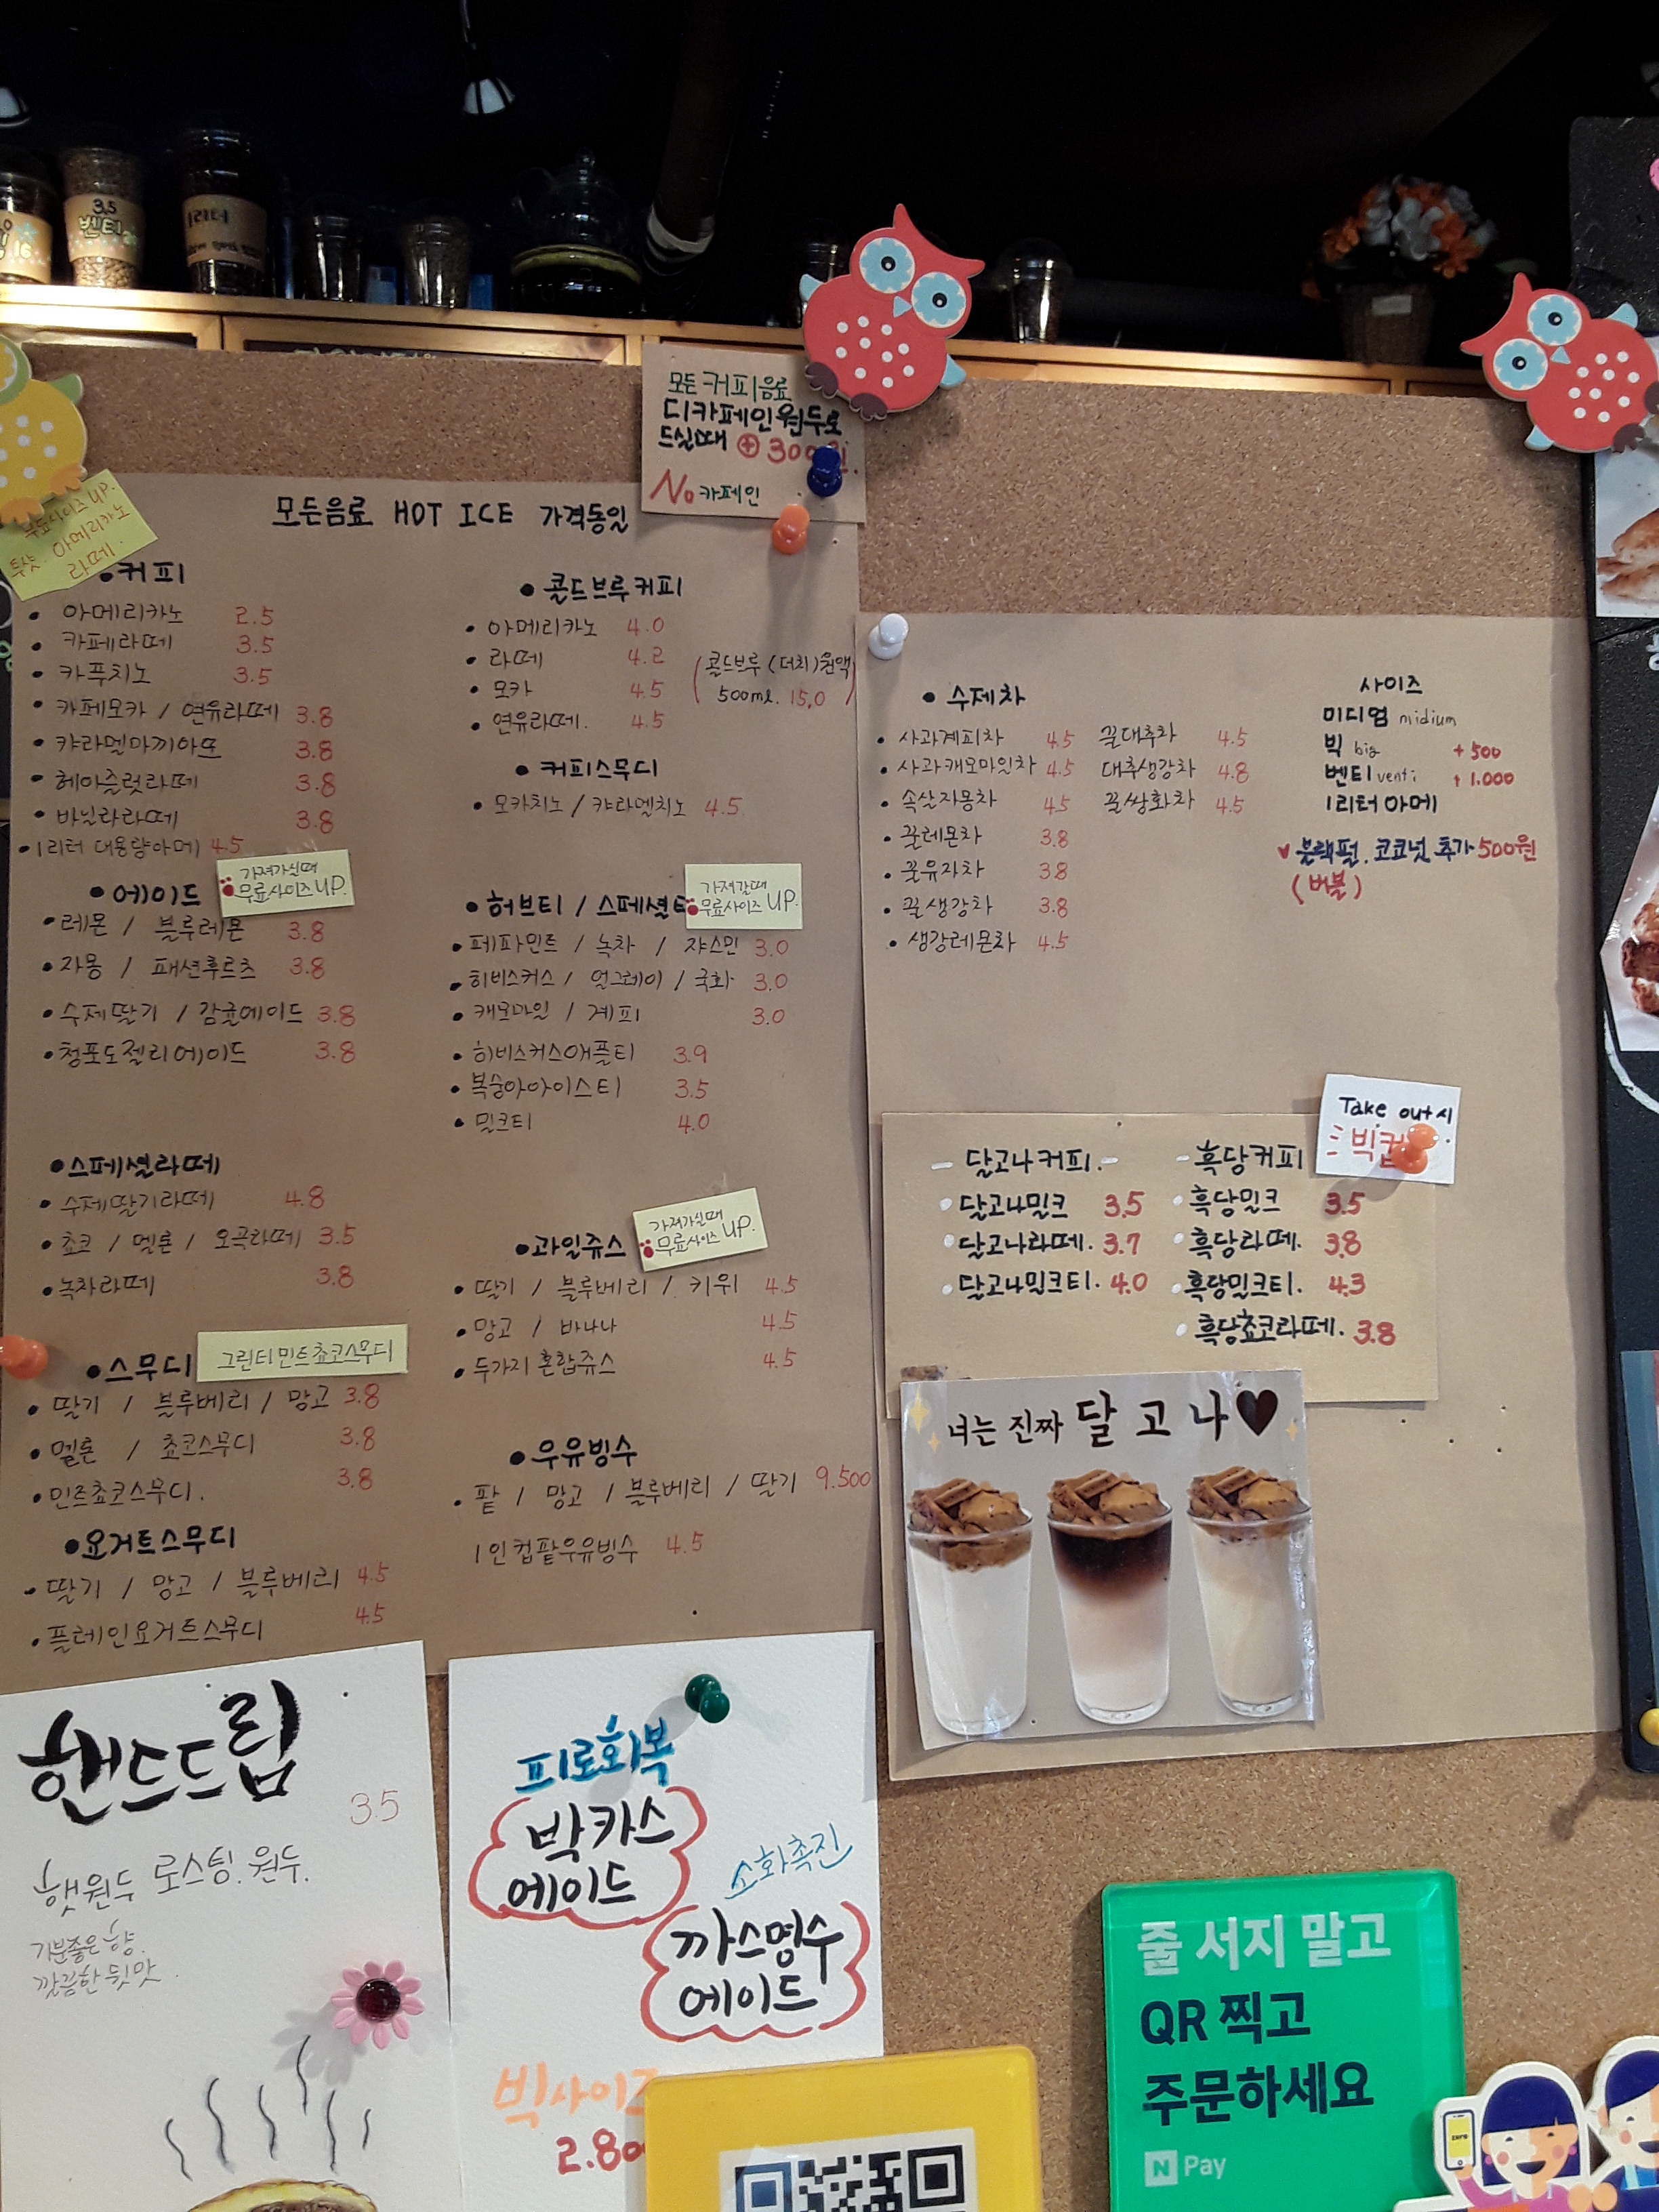 3.5
벤티
1리터
모든 커피음료
디카페인 원두로
드실때 ⊕ 300원.
No 카페인
무료사이즈 UP.
투샷. 아메리카노
라떼.
모든음료 HOT ICE 가격동일
• 커피
• 아메리카노 2.5
• 카페라떼 3.5
• 카푸치노 3.5
• 카페모카 / 연유라떼 3.8
• 캬라멜마끼아또 3.8
• 헤이즐럿라떼 3.8
• 바닐라라떼 3.8
• 1리터 대용량아메 4.5
• 에이드
가져가실때
무료사이즈 UP.
• 레몬 / 블루레몬 3.8
• 자몽 / 패션후르츠 3.8
• 수제딸기 / 감귤에이드 3.8
• 청포도젤리에이드 3.8
• 스페셜라떼
• 수제딸기라떼 4.8
• 쵸코 / 멜론 / 오곡라떼 3.5
• 녹차라떼 3.8
• 스무디
그린티민트쵸코스무디
• 딸기 / 블루베리 / 망고 3.8
• 멜론 / 쵸코스무디 3.8
• 민트쵸코스무디. 3.8
• 요거트스무디
• 딸기 / 망고 / 블루베리 4.5
• 플레인요거트스무디 4.5
• 콜드브루커피
• 아메리카노 4.0
• 라떼 4.2
• 모카 4.5
• 연유라떼. 4.5
(콜드브루(더치)원액
500ml. 15.0)
• 커피스무디
• 모카치노 / 캬라멜치노 4.5
• 허브티 / 스페셜티
가져갈때
무료사이즈 UP.
• 페파민트 / 녹차 / 쟈스민 3.0
• 히비스커스 / 얼그레이 / 국화 3.0
• 캐모마일 / 계피 3.0
• 히비스커스애플티 3.9
• 복숭아아이스티 3.5
• 밀크티 4.0
• 과일쥬스
가져가실때
무료사이즈 UP.
• 딸기 / 블루베리 / 키위 4.5
• 망고 / 바나나 4.5
• 두가지 혼합쥬스 4.5
• 우유빙수
• 팥 / 망고 / 블루베리 / 딸기 9.500
1인컵팥우유빙수 4.5
• 수제차
• 사과계피차 4.5 꿀대추차 4.5
• 사과캐모마일차 4.5 대추생강차 4.8
• 속살자몽차 4.5 꿀쌍화차 4.5
• 꿀레몬차 3.8
• 꿀유자차 3.8
• 꿀생강차 3.8
• 생강레몬차 4.5
사이즈
미디엄 midium
빅 big +500
벤티 venti +1.000
1리터 아메
블랙펄, 코코넛, 추가 500원
(버블)
Take out시
빅컵
- 달고나커피.-
달고나밀크 3.5
달고나라떼. 3.7
달고나밀크티. 4.0
- 흑당커피
흑당밀크 3.5
흑당라떼. 3.8
흑당밀크티. 4.3
흑당쵸코라떼. 3.8
너는 진짜 달 고 나♥
핸드드립
3.5
햇원두 로스팅. 원두.
기분좋은 향.
깔끔한 뒷맛.
피로회복
박카스
에이드
소화촉진
까스명수
에이드
빅사이즈
2.80
줄 서지 말고
QR 찍고
주문하세요
N Pay
zero